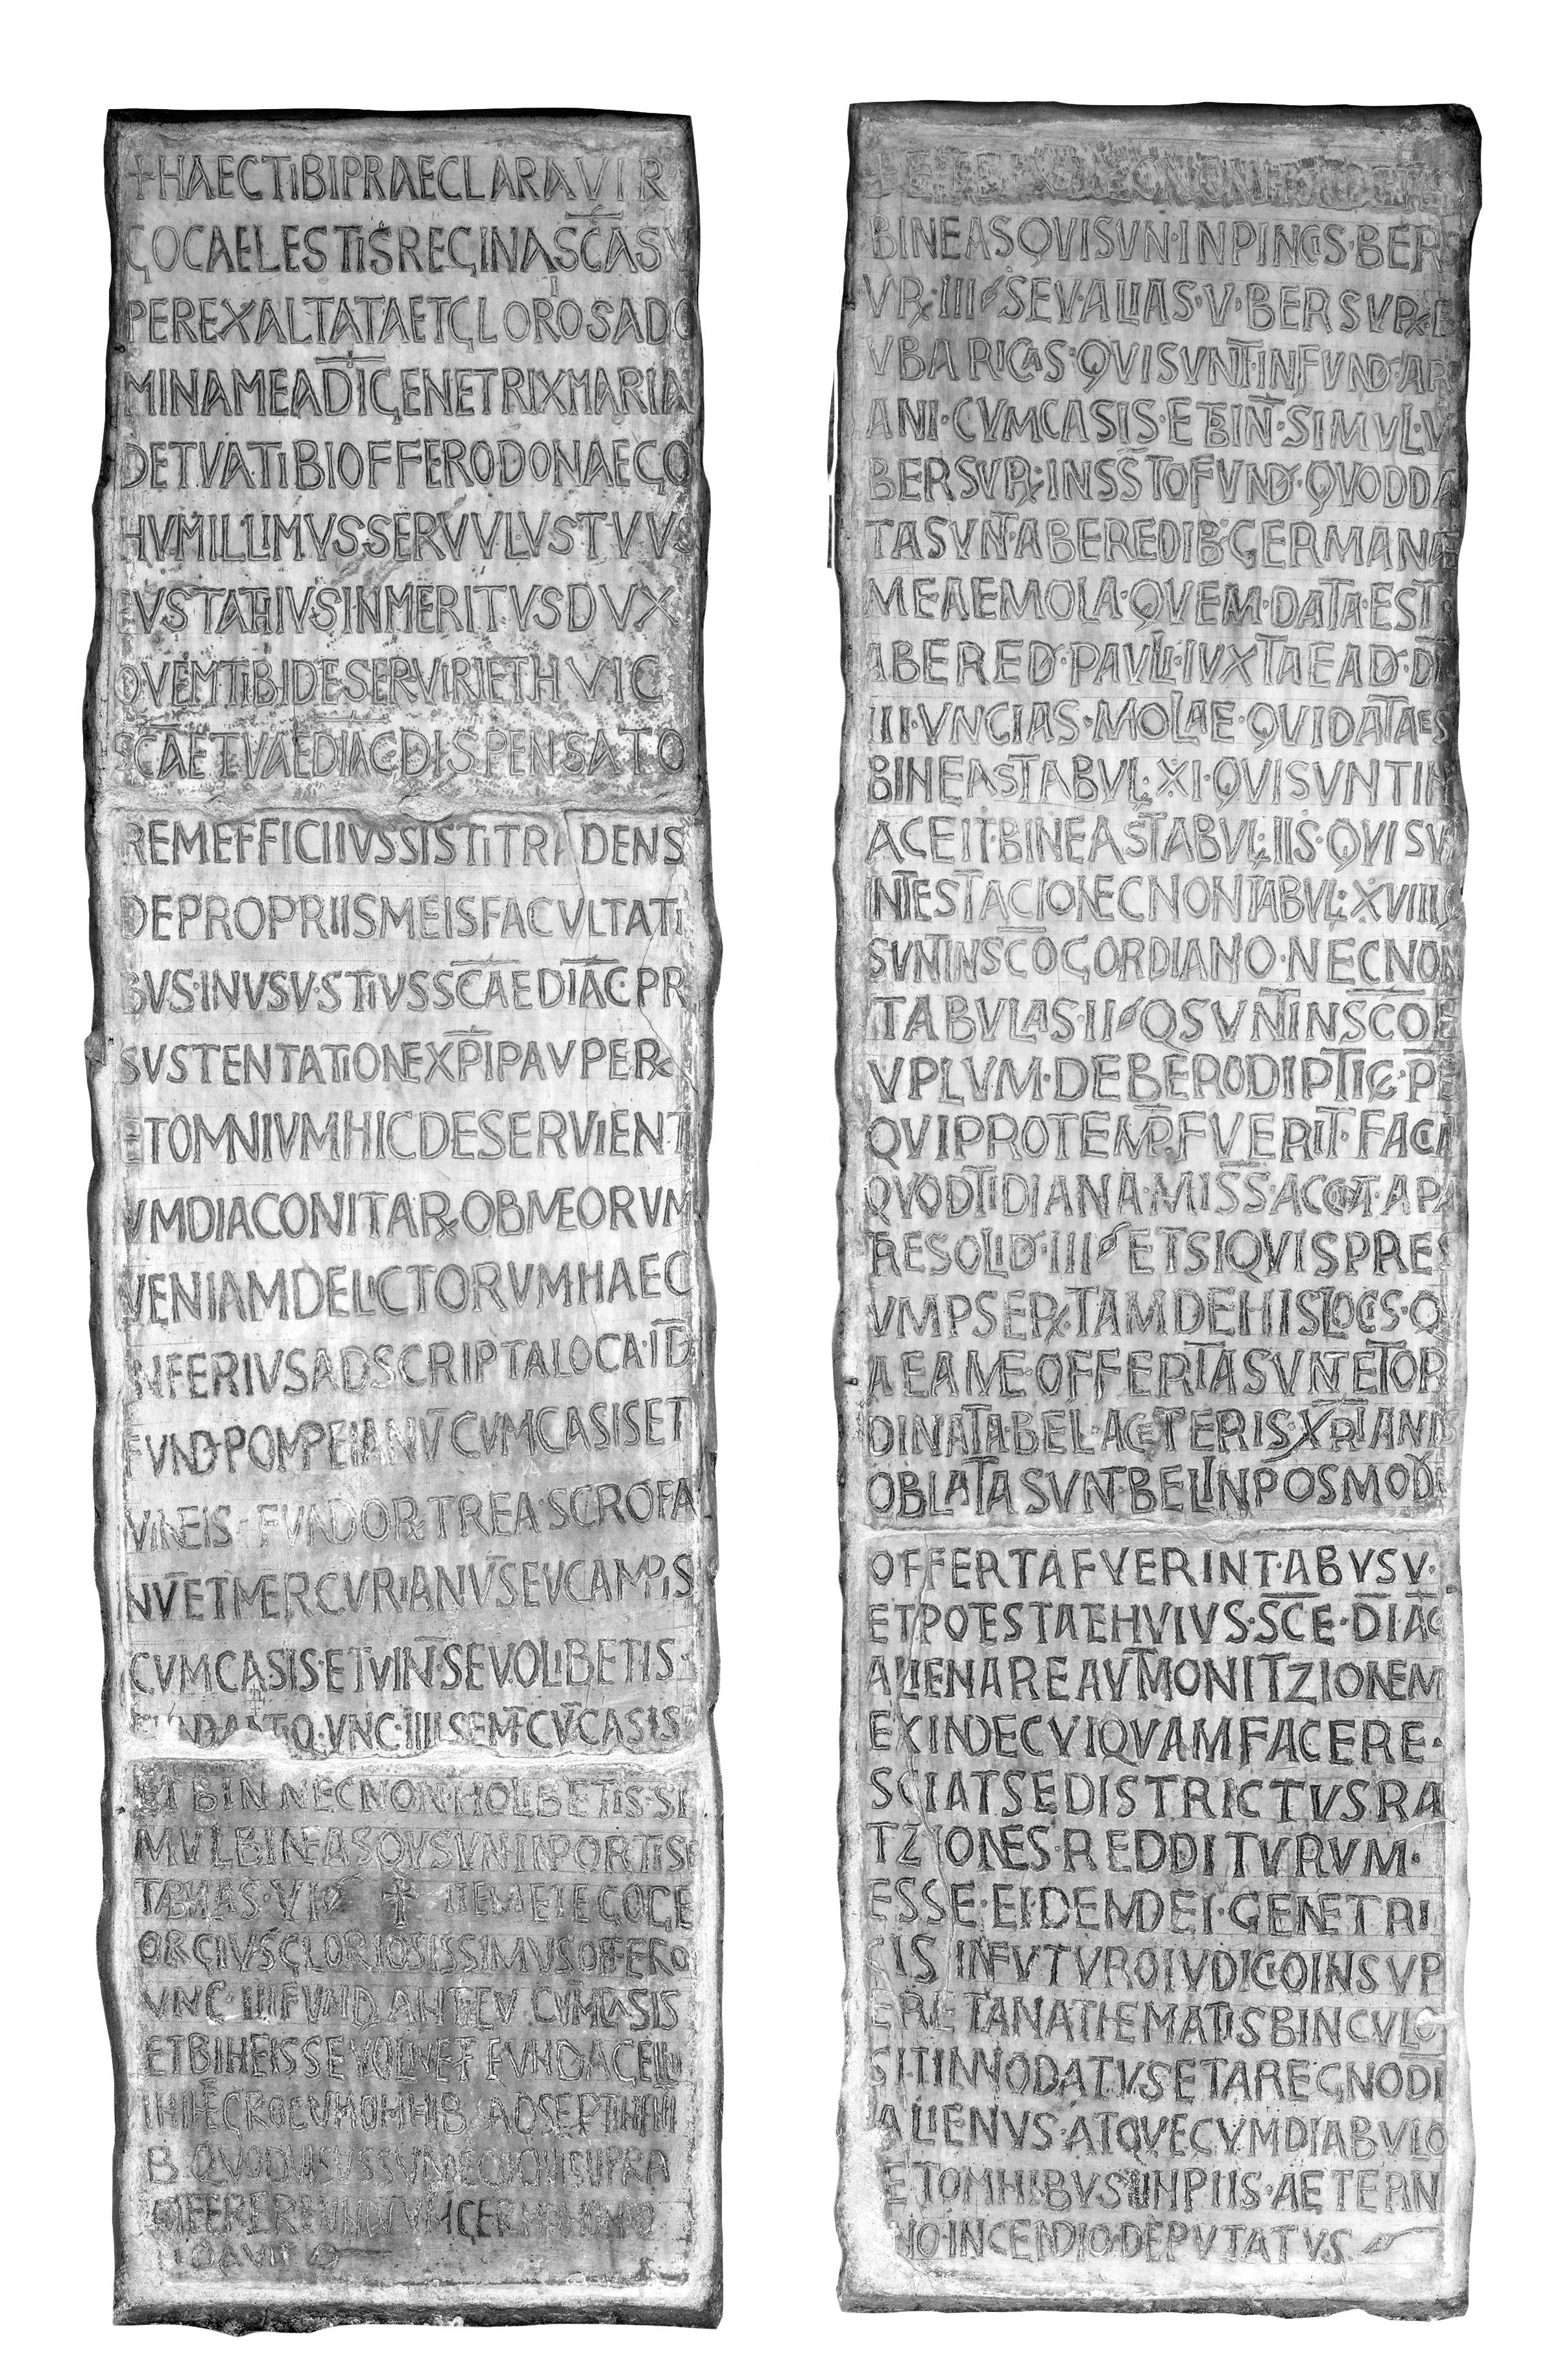 + HAEC TIBI PRAECLARA VIR
GO CAELESTIS REGINA SCA SV
PER EXALTATA ET GLORIOSA DO
MINA MEA DI GENETRIX MARIA
DE TVA TIBI OFFERO DONA EGO
HVMILLIMVS SERVVLVS TVVS
EVSTATHIVS INMERITVS DVX
QVEM TIBI DESERVIRI ET HVIC
SCAE TVAE DIAC DISPENSATO
REM EFFICI IVSSISTI TRADENS
DE PROPRIIS MEIS FACVLTATI
BVS IN VSV STIVS SCAE DIAC PR
SVSTENTATIONE XPI PAVPER
ET OMNIVM HIC DESERVIENT
VM DIACONITAR OB MEORVM
VENIAM DELICTORVM HAEC
INFERIVS ADSCRIPTA LOCA ID
FVND POMPEIANV CVM CASIS ET
VINEIS FVNDOR TREA SCROFA
NV ET MERCVRIANV SEV CAMPIS
CVM CASIS ET VIN SEV OLIBETIS
FVND ANTIQ VNC IIII SEM CV CASIS
ET BIN NECNON HOLIBETIS SI
MVL BINEAS QVI SVN IN PORTIS
TABVLAS VI + ITEM ET EGO GE
ORGIVS GLORIOSISSIMVS OFFERO
VNC III FVND CVM CASIS
ET BINEIS SEV OLIVET FVND AGELLI
SEPTIM
B QVOD SVPRA
OFFERERE GERMANO
DAVIT
BINEAS QVI SVN IN PINCIS BER
VR III S SEV ALIAS V BER SVPR B
VBARICAS QVI SVNT IN FVND AR
ANI CVM CASIS ET BIN SIMVL V
BER SVPR IN SSTO FVND QVOD DA
TA SVNT AB EREDIB GERMANAE
MEAE MOLA QVEM DATA EST
AB ERED PAVLI IVXTA EAD DI
III VNCIAS MOLAE QVI DATA ES
BINEAS TABVL XI QVI SVNT IN
ACEIT BINEAS TABVL IIS QVI SVN
IN TESTACIO NECNON TABVL XVIIII
SVNT IN SCO GORDIANO NECNON
TABVLAS II S Q SVNT IN SCO E
VPLVM DE BERO DIPTIC PB
QVI PRO TEMP FVERIT FACIA
QVODTIDIANA MISS ACCPT A PA
RE SOLID III S ET SI QVIS PRES
VMPSER TAM DE HIS LOCIS Q
A EA ME OFFERTA SVNT ET OR
DINATA BEL A CETERIS XRIANIS
OBLATA SVNT BEL IN POSMODV
OFFERTA FVERINT AB VSV
ET POTESTATE HVIVS SCE DIAC
ALIENARE AVT MONITZIONEM
EXINDE CVIQVAM FACERE
SCIAT SE DISTRICTVS RA
TZIONES REDDITVRVM
ESSE EIDEM DEI GENETRI
CIS IN FVTVRO IVDICIO INSVP
ER ET ANATHEMATIS BINCVLO
SIT INNODATVS ET A REGNO DI
ALIENVS ATQVE CVM DIABVLO
ET OMNIBVS IMPIIS AETERN
NO INCENDIO DEPVTATVS